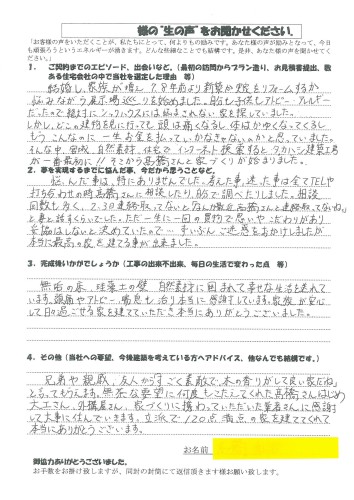 様の"生の声"をお聞かせください。
「お客様の声をいただくことが、私たちにとって、何よりもの励みです。あなた様の声が励みとなって、今日
も頑張ろうというエネルギーが湧きます。どんな些細なことでも結構です。是非、あなた様の声を聞かせてく
ださい。」
1. ご契約までのエピソード、出会いなど。(最初の訪問からプラン造り、お見積書提出、数
ある住宅会社の中で当社を選定した理由 等)
結婚し、家族が増え、7、8年前より新築か改装をリフォームするか
悩みながら展示場巡りを始めました。
だったので絶対にシックハウスには悩まされない家を探していました。
しかし、どこの建物を見に行っても頭は痛くなるし体はかゆくなってくるし
もうこんなのに一生お金を払っていかなきゃないのかと思っていました。
そんな中、宮城、自然素材、住宅でインターネット検索するとワカバヤシ建築工房
が一番最初に!!そこから高橋さんと家づくりが始まりました。
2. 夢を実現するまでに悩んだ事、今だから思うことなど。
悩んだ事は、特にありませんでした。考えた事、迷った事は全てTELや
打ち合わせの時高橋さんに相談したり、皆で調べたりしました。相談
回数も多く、
と妻と話すくらいでした。ただ一生に一回の買物で思いやこだわりがあり
妥協はしないと決めていたので…ずいぶんご迷惑をおかけしましたが
本当に最高の家を建てる事が出来ました。
3. 完成後いかがでしょうか(工事の出来不出来、毎日の生活で変わった点 等)
無垢の床、珪藻土の壁、自然素材に囲まれて幸せな生活を送れて
います。頭痛やアトピー、喘息も治り本当に感謝しています。家族が安心
して日々過ごせる家を建てていただき本当にありがとうございました。
4. その他(当社への要望、今後建築を考えている方へアドバイス、他なんでも結構です。)
兄弟や親戚、友人からすごく素敵で、木の香りがして良い家だね」
と言ってもらえます。無茶な要望に何度もこたえてくれた高橋さんはじめ
大工さん、外構屋さん、家づくりに携わっていただいた業者さんに感謝
して大事に住んでいきます。立派で120点満点の家を建ててくれて
本当にありがとうございます。
お名前
御協力ありがとうございました。
お手数をお掛け致しますが、同封の封筒にて返信頂きます様お願い致します。